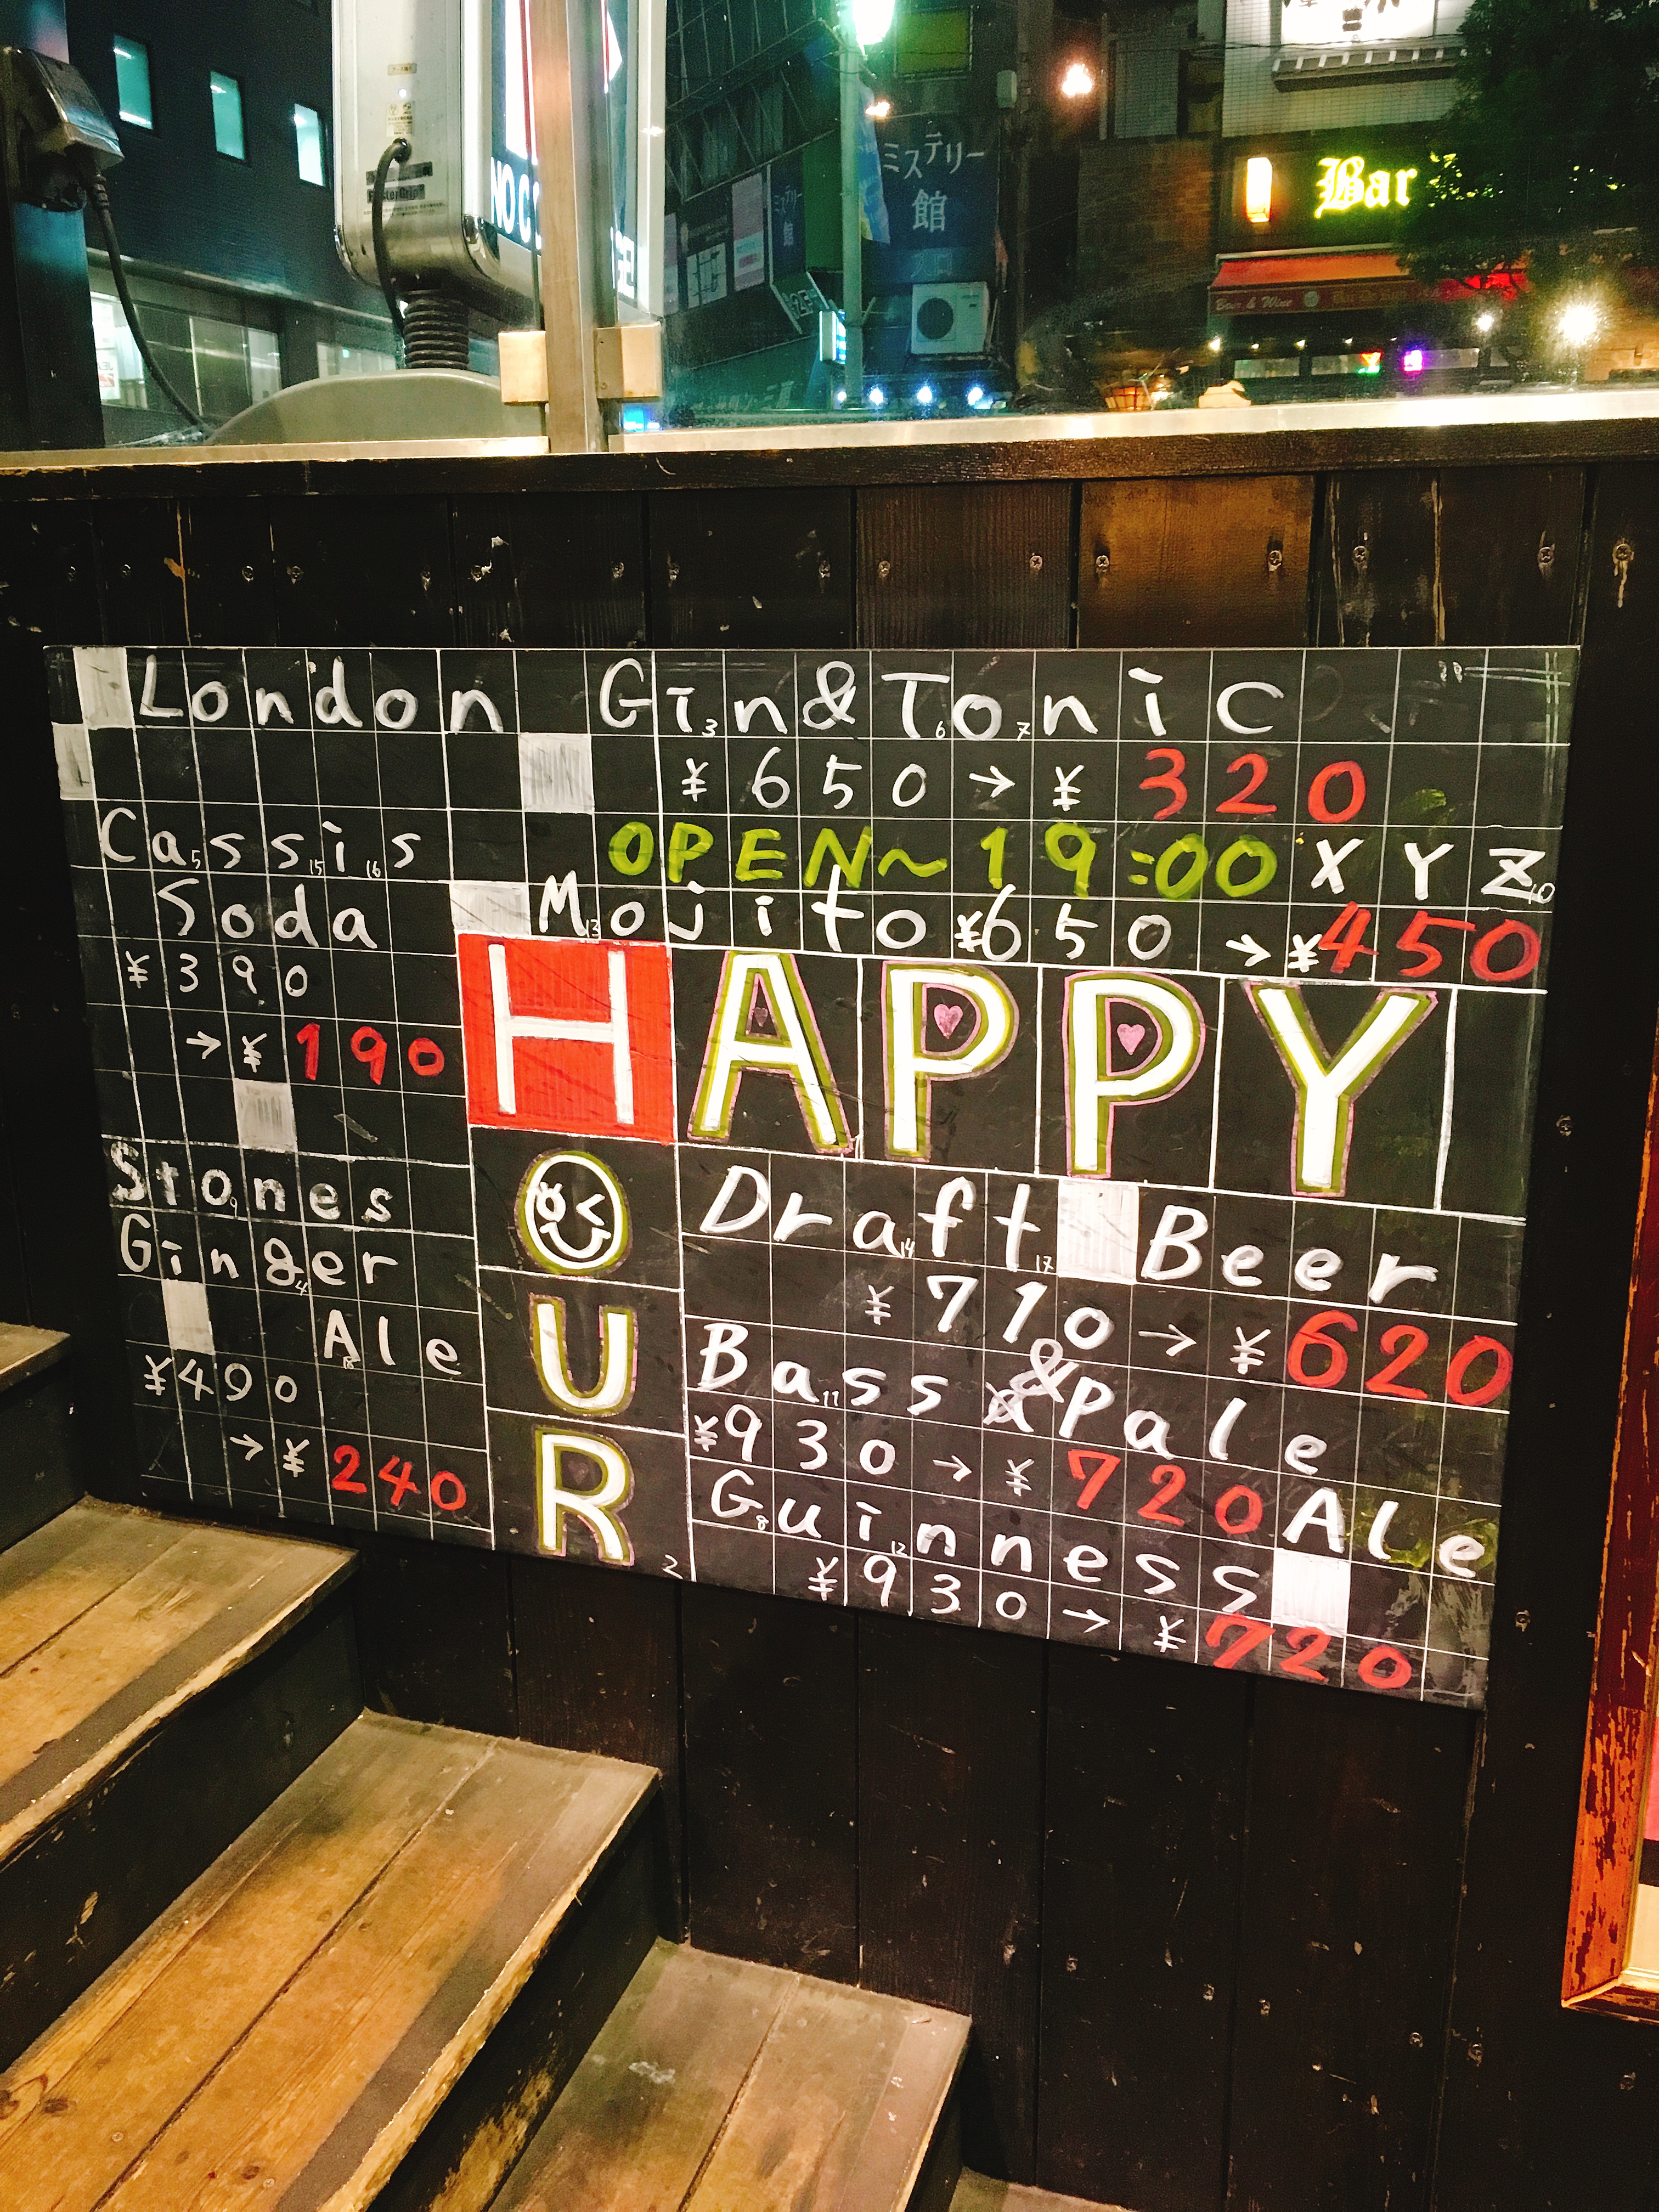 NO C
GE!
ミステリー
館
ミステリー
館
Bar
Beer & Wine
London Gin & Tonic
¥650→¥320
OPEN~19:00 XYZ
Mojito ¥650→¥450
Cassis
Soda
¥390
→¥190
HAPPY
HOUR
Stones
Ginger
Ale
¥490
→¥240
Draft Beer
¥710→¥620
Bass & Pale
¥930→¥720 Ale
Guinness
¥930→¥720